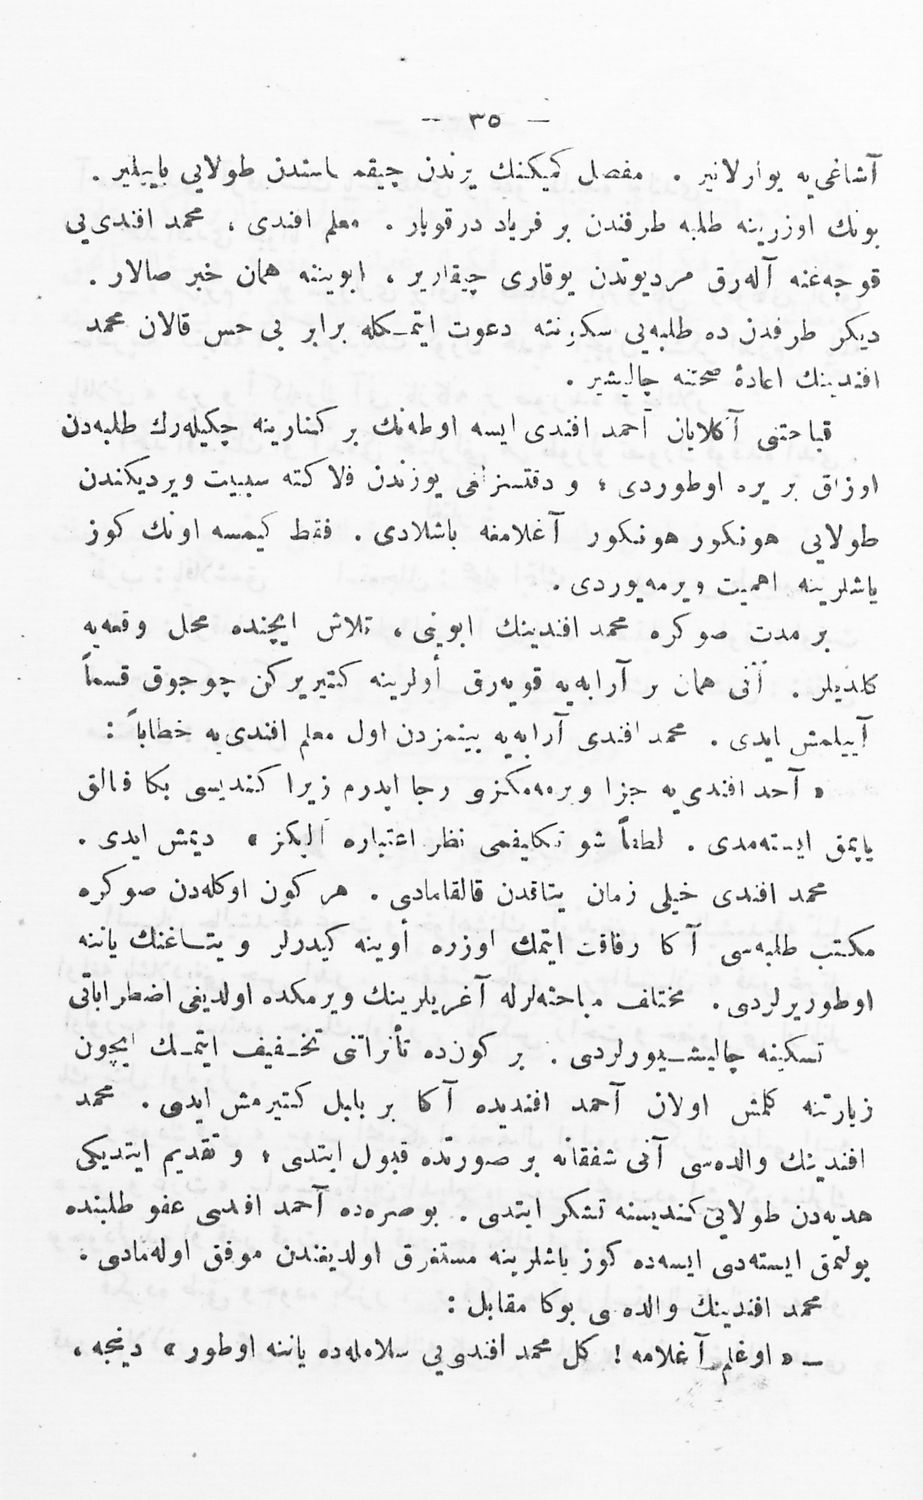 — ٣٥ —
آشاغی‌یه یوارلانیر . مفصل کمیکنك یرندن چیقمه ‌سندن طولایی باییلیر .
بونك اوزرینه طلبه طرفندن بر فریاد درقوپار . معلم افندی ، محمد افندی‌یی
قوجه‌غنه آله‌رق مردیوندن یوقاری چیقاریر ، ابویننه همان خبر صالار .
دیکر طرفدن ده طلبه‌یی سکونته دعوت ایتمکله برابر بی حس قالان محمد
افندینك اعادۀ صحتنه چالیشیر .
قباحتنی آکلایان آحمد افندی ایسه اوطه‌نك بر کنارینه چکیله‌رك طلبه‌دن
اوزاق بر یره اوطوردی ؛ و دقتسزلغی یوزندن فلاکته سببیت ویردیکندن
طولایی هونکور هونکور آغلامغه باشلادی . فقط کیمسه اونك کوز
یاشلرینه اهمیت ویرمه‌یوردی .
بر مدت صوکره محمد افندینك ابوینی ، تلاش ایچنده محل وقعه‌یه
کلدیلر . آنی همان بر آرابه‌یه قویه‌رق أولرینه کتیریرکن چوجوق قسماً
آییلمش ایدی . محمد افندی آرابه‌یه بینمزدن اول معلم افندی‌یه خطاباً :
« آحمد افندی‌یه جزا ویرمه‌مکزی رجا ایدرم زیرا کندیسی بکا فنالق
یاپمق ایسته‌مدی . لطفاً شو تکلیفمی نظر اعتباره آلیکز » دیمش ایدی .
محمد افندی خیلی زمان یتاقدن قالقامادی . هر کون اوکله‌دن صوکره
مکتب طلبه‌سی آکا رفاقت ایتمك اوزره أوینه کیدرلر و یتاغنك یاننه
اوطوریرلردی . مختلف مباحثه‌لرله آغریلرینك ویرمکده اولدیغی اضطراباتی
تسکینه چالیشیورلردی . بر کون‌ده تأثراتنی تخفیف ایتمك ایچون
زیارتنه کلمش اولان آحمد افندیده آکا بر بلبل کتیرمش ایدی . محمد
افندینك والده‌سی آنی شفقانه بر صورتده قبول ایتدی ؛ و تقدیم ایتدیکی
هدیه‌دن طولایی کندیسنه تشکر ایتدی . بوصره‌ده آحمد افندی عفو طلبنده
بولنمق ایسته‌دی ایسه‌ده کوز یاشلرینه مستغرق اولدیغندن موفق اوله‌مادی .
محمد افندینك والده‌سی بوکا مقابل :
— « اوغلم آغلامه ! کل محمد افندی‌یی سلامله‌ده یاننه اوطور » دینجه ،